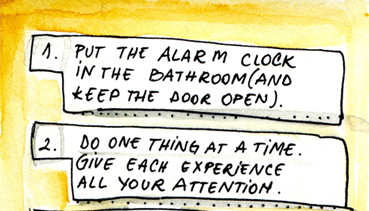 1. PUT THE ALARM CLOCK
IN THE BATHROOM (AND
KEEP THE DOOR OPEN).
2. DO ONE THING AT A TIME.
GIVE EACH EXPERIENCE
ALL YOUR ATTENTION.